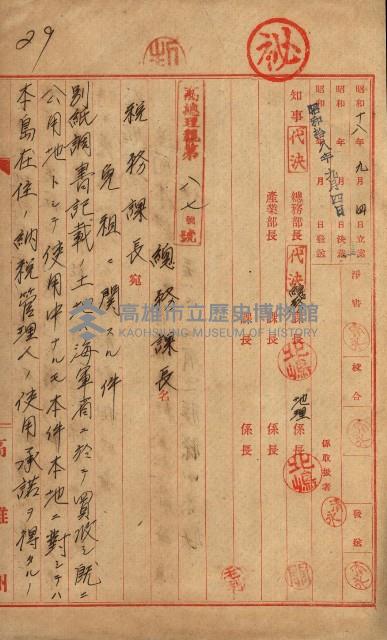 29
秘
昭和十八年九月四日立案
昭和 年 月 日決裁
昭和拾八年九月四日
昭和 年 月 日發送
淨書
校合
發送
係取扱者
知事
代決
總務部長
代決
產業部長
課長
課長
係長
係長
地理
高總理輯第八七號
總務課長名
稅務課長宛
免租ニ關スル件
別紙調書記載ノ土地ハ海軍省ニ於テ買收シ既ニ
公用地トシテ使用中ナルモ本件本地ニ對シテハ
本島在住ノ納稅管理人ノ使用承諾ヲ得タルノ
高雄州
高雄市立歷史博物館
KAOHSIUNG MUSEUM OF HISTORY